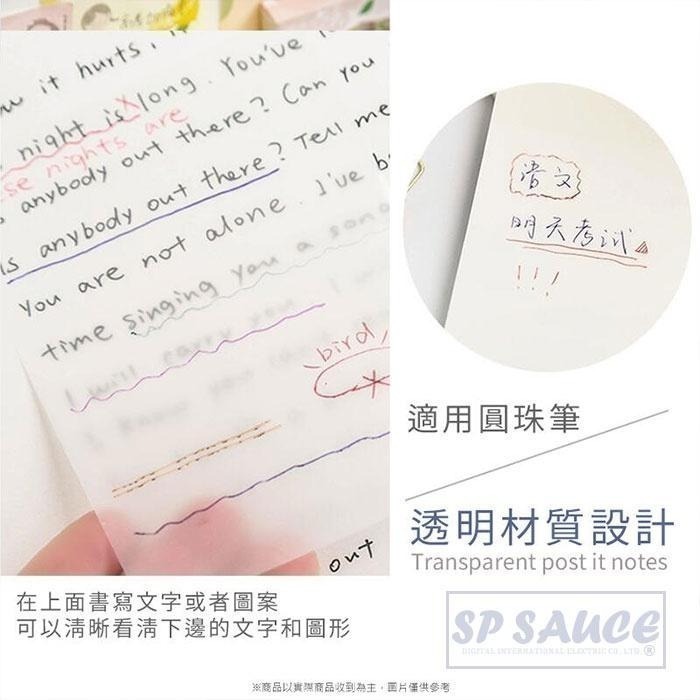 w it hurts,
night is long. You've
se nights are
s anybody out there? Can you
is anybody out there? Tell me
You are not alone. I've b
time singing you a song
I will carry you
bird
out
语文
明天考试
!!!
適用圓珠筆
透明材質設計
Transparent post it notes
在上面書寫文字或者圖案
可以清晰看清下邊的文字和圖形
SP SAUCE
DIGITAL INTERNATIONAL ELECTRIC CO., LTD.®
※商品以實際商品收到為主，圖片僅供參考